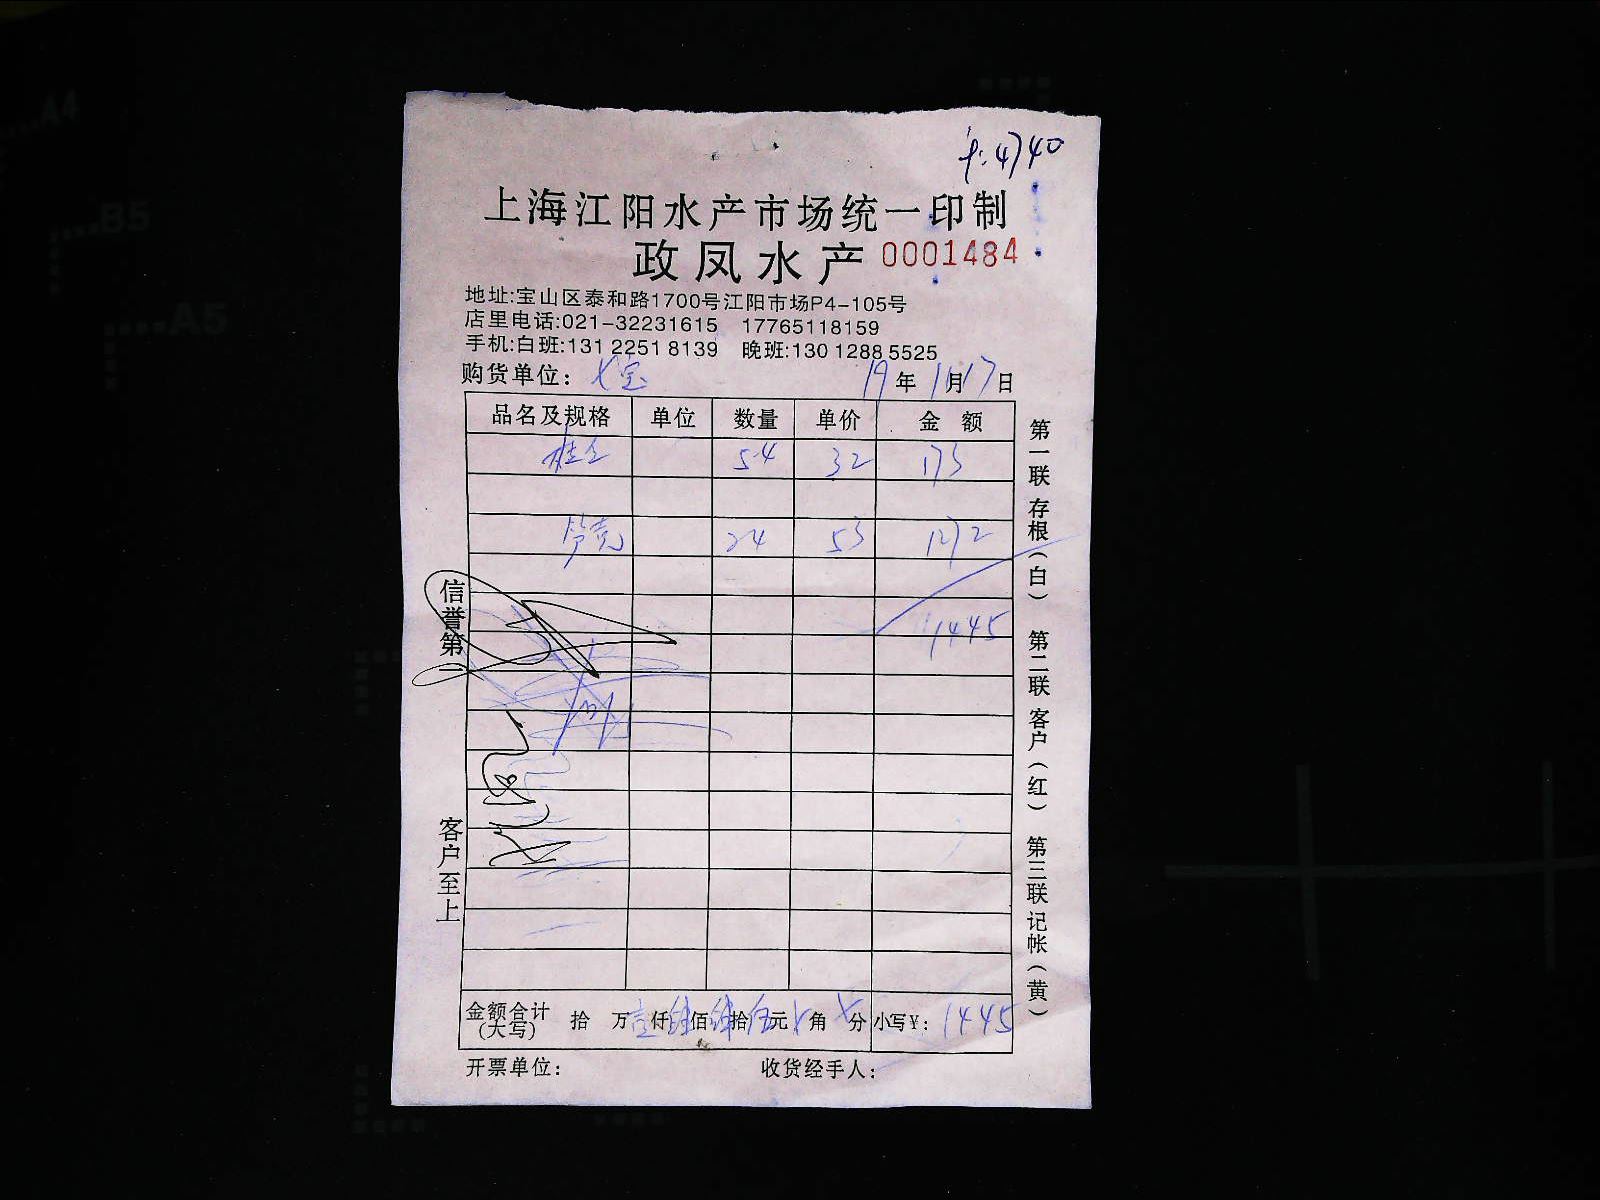 4740
上海江阳水产市场统一印制
政凤水产 0001484
地址:宝山区泰和路1700号江阳市场P4-105号
店里电话:021-32231615 17765118159
手机:白班:131 2251 8139 晚班:130 1288 5525
购货单位: 七宝 19年1月17日
品名及规格 单位 数量 单价 金额
桂 5.4 32 173
笋壳 24 53 1272
1445
金额合计(大写) 拾 万壹仟肆佰肆拾伍元 角 分 小写¥: 1445
开票单位: 收货经手人:
信誉第一
客户至上
第一联 存根(白) 第二联 客户(红) 第三联 记帐(黄)